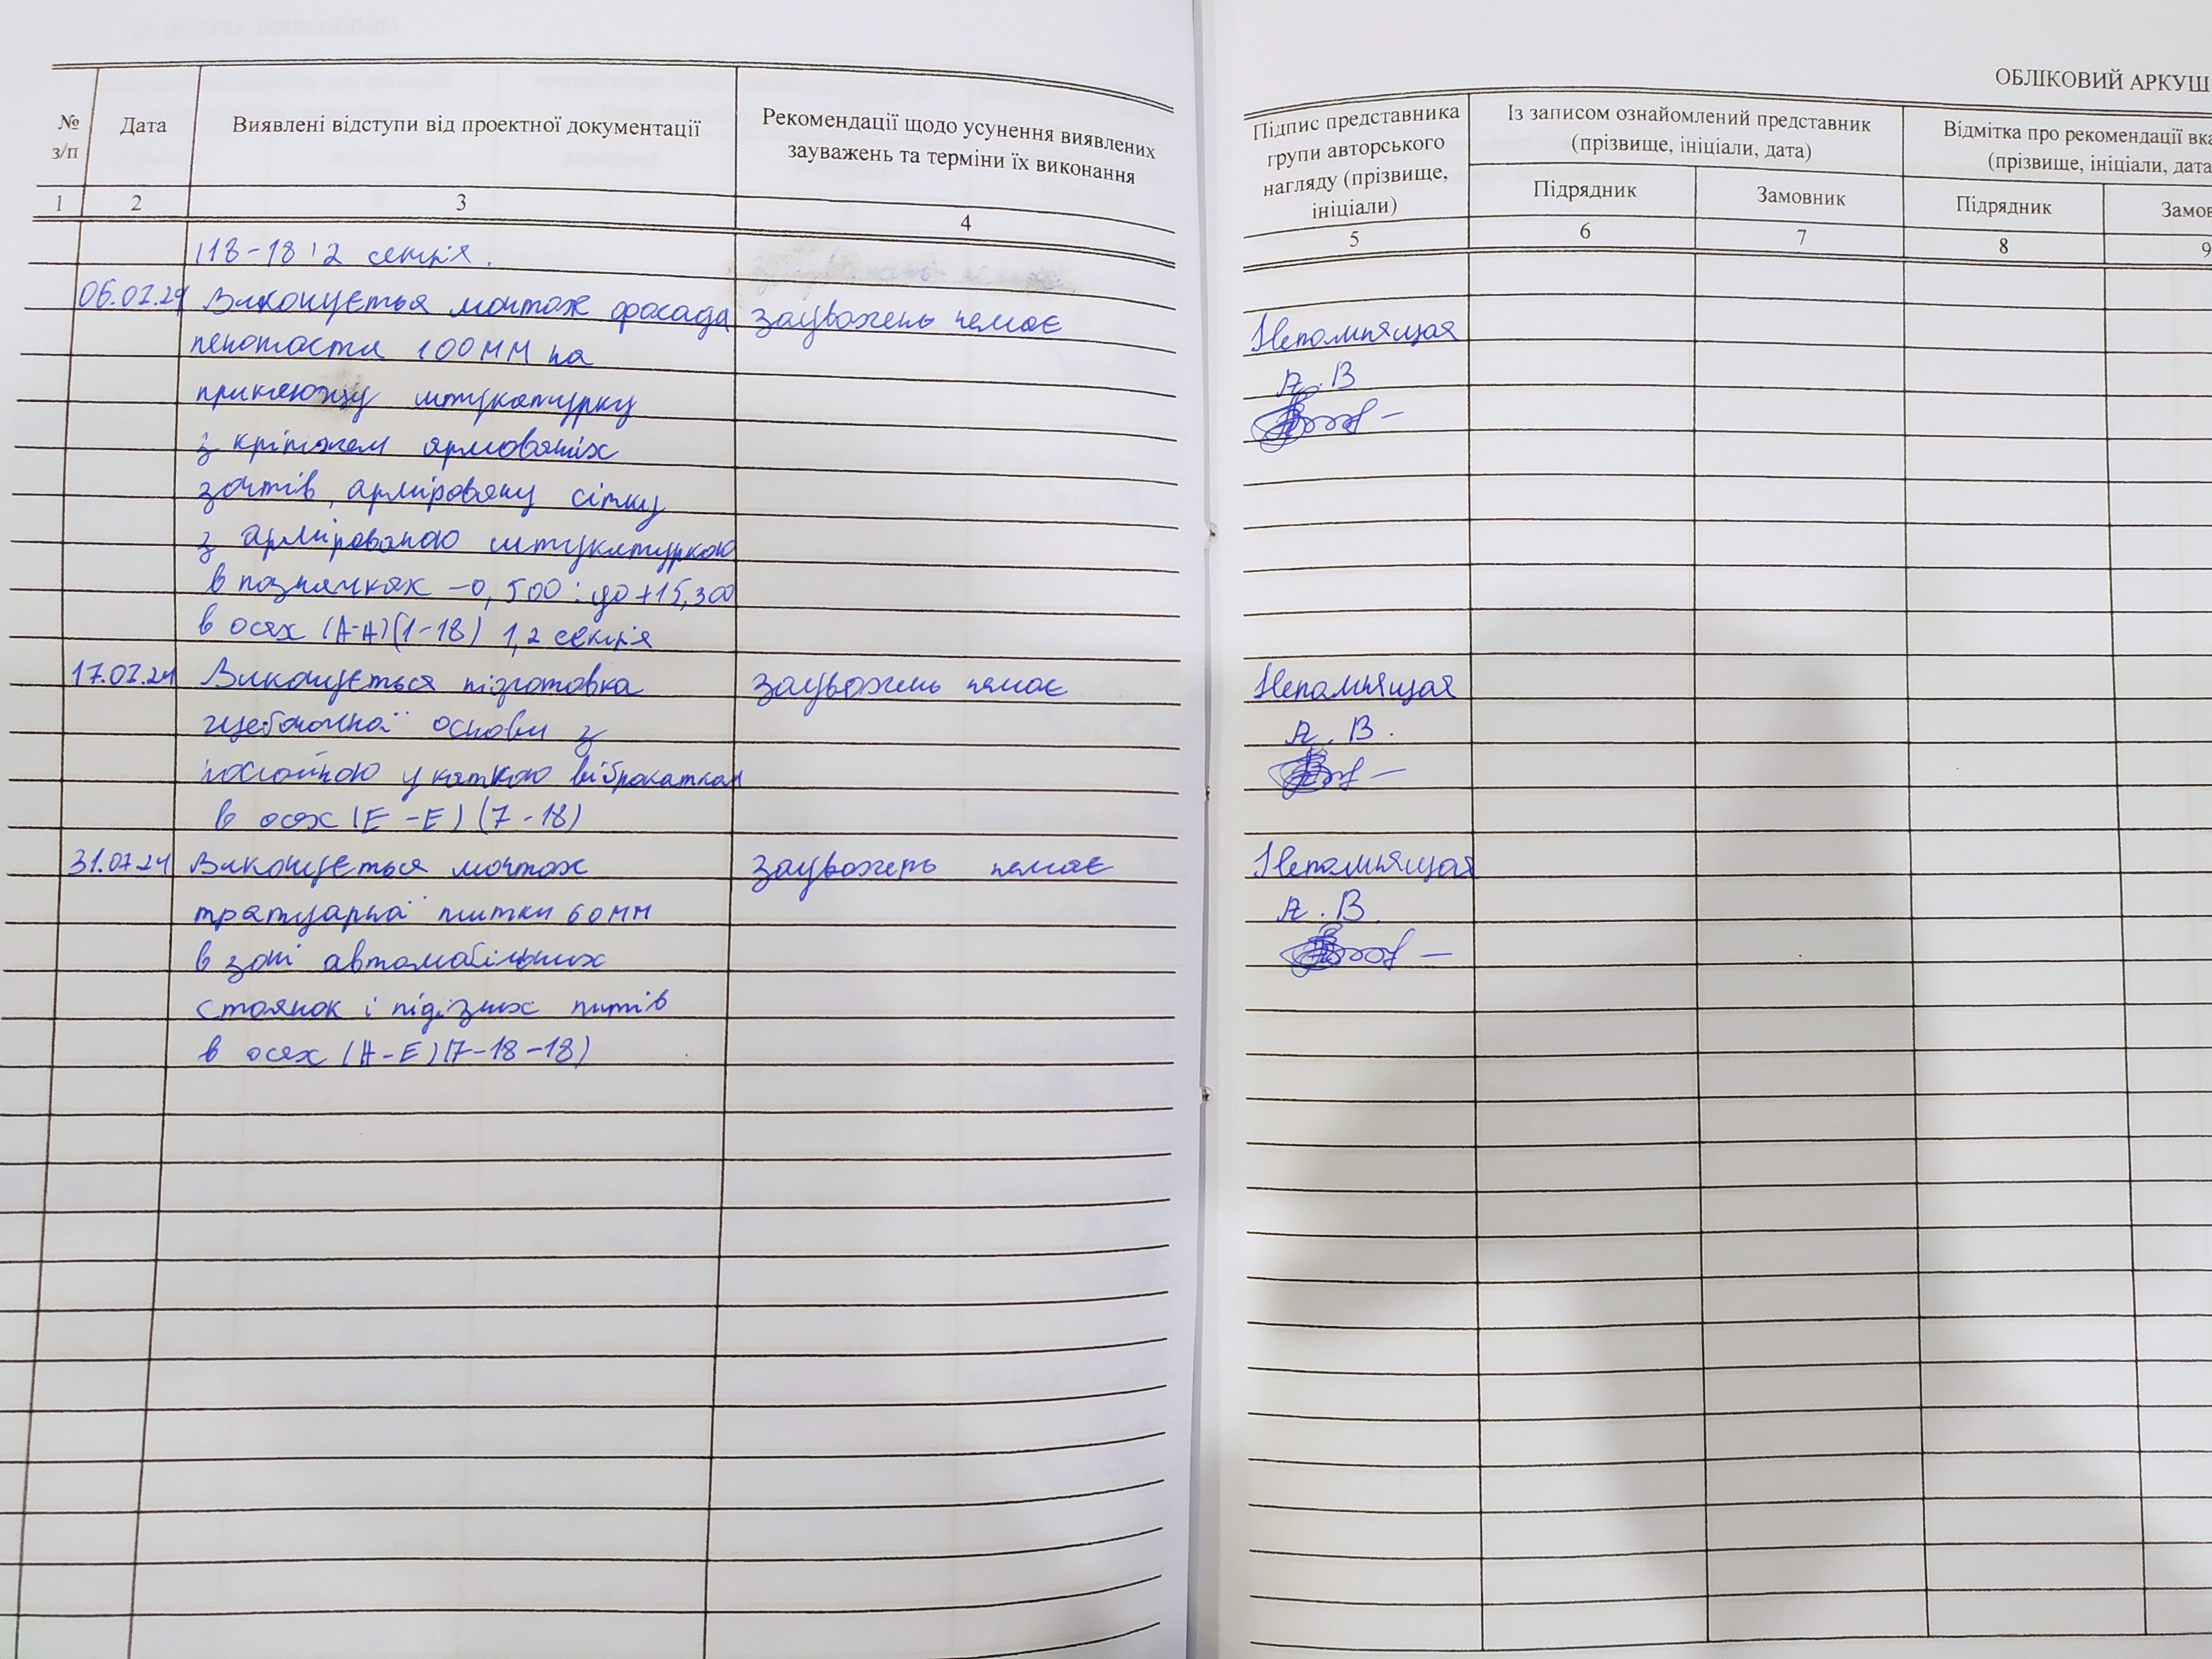 ОБЛІКОВИЙ АРКУШ
№ з/п
Дата
Виявлені відступи від проектної документації
Рекомендації щодо усунення виявлених
зауважень та терміни їх виконання
Підпис представника
групи авторського
нагляду (прізвище,
ініціали)
Із записом ознайомлений представник
(прізвище, ініціали, дата)
Відмітка про рекомендації
(прізвище, ініціали, дата
Підрядник
Замовник
Підрядник
1 2 3 4 5 6 7 8 9
(18-18) 2 секція.
06.07.24 Виконується монтаж фасада зауважень немає Непомнящая
пенопаста 100мм на
А.В
приклеюжу штукатурку
з кріпжем армованіх
зонтів, арміровану сітку
з армірованою штукатуркою
в позначках -0,500: до +15,300
в осях (А-А)(1-18) 1,2 секція
17.07.24 Виконується пізготовка зауважень немає Непомнящая
основи з
А.В.
укаткою віброкатком
в осях (Е-Е) (7-18)
31.07.24 Виконується монтаж зауважень немає Непомнящая
тратуарної плитки 60мм
А.В.
в зоні автомобільних
стоянок і підїзних путів
в осях (А-Е)(7-18-18)